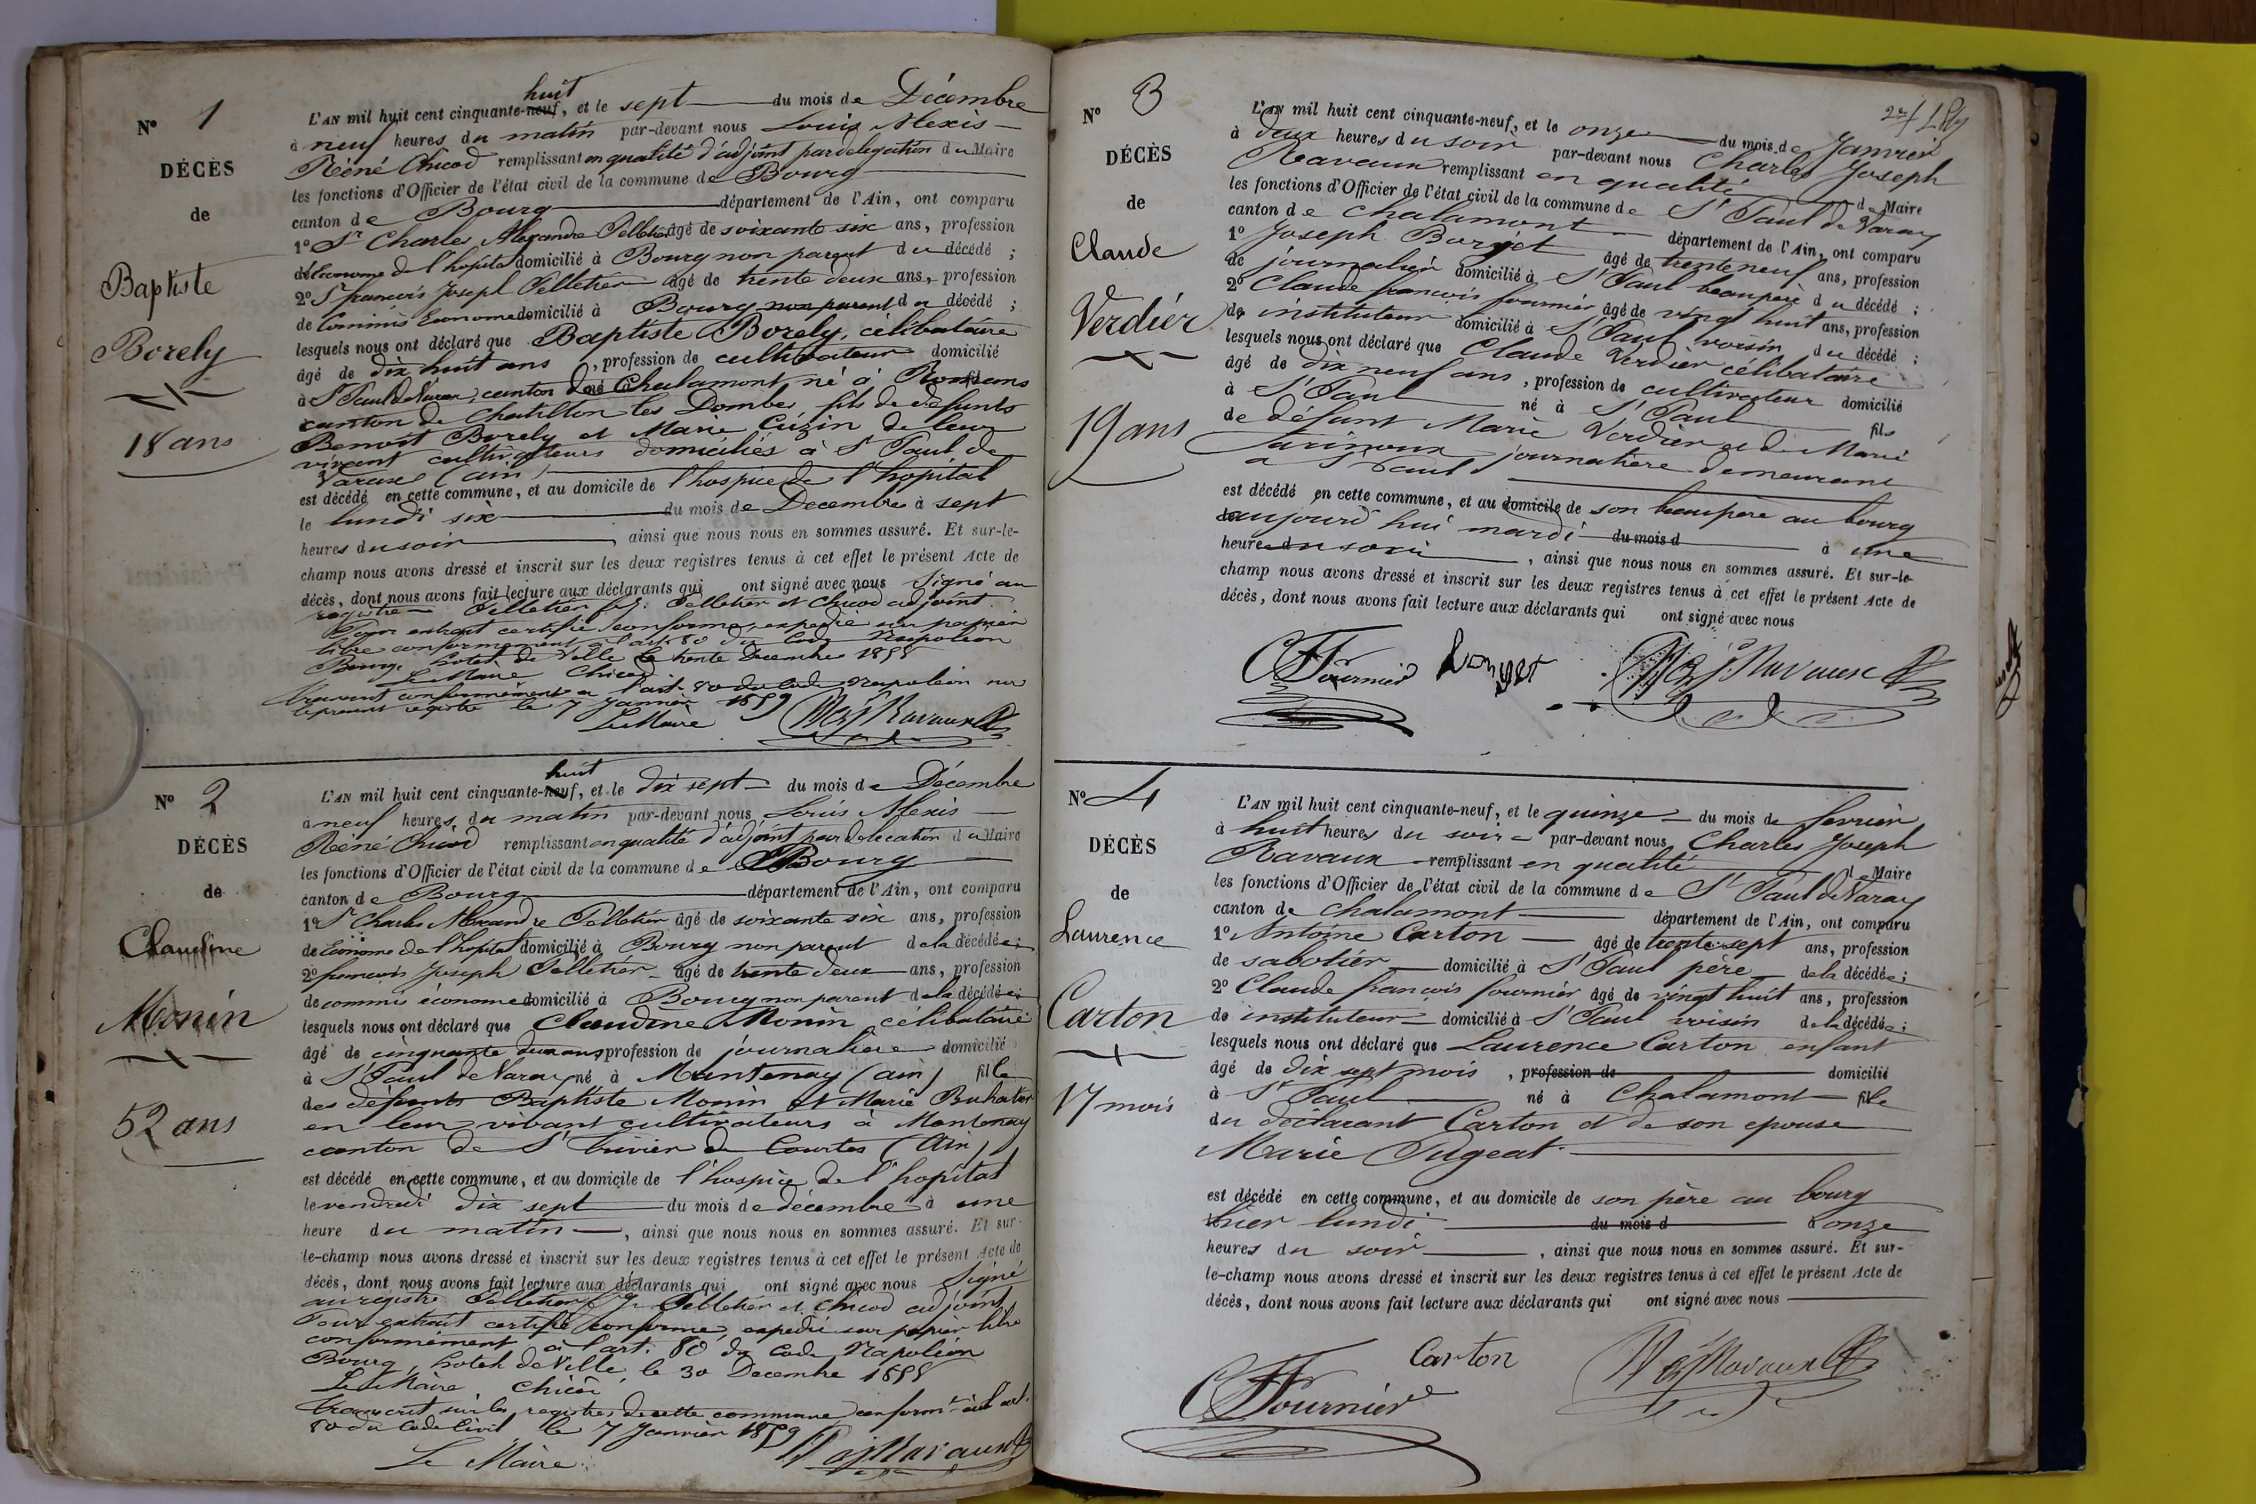 N° 1
DÉCÈS
de
Baptiste
Borely
18 ans
huit
L'AN mil huit cent cinquante-neuf, et le sept du mois de Décembre
à neuf heures du matin par-devant nous Louis Alexis
Réné Chicod remplissant en qualité d'adjoint par délégation du Maire
les fonctions d'Officier de l'état civil de la commune de Bourg
canton de Bourg département de l'Ain, ont comparu
1° Sr Charles Alexandre Pelletier âgé de soixante six ans, profession
d'Econome de l'hopital domicilié à Bourg non parent du décédé ;
2° Sr françois Joseph Pelletier âgé de trente deux ans, profession
de Commis Econome domicilié à Bourg non parent du décédé ;
lesquels nous ont déclaré que Baptiste Borely, célibataire
âgé de dix huit ans, profession de cultivateur domicilié
à St Paul de Varax, canton de Chalamont né à
canton de Chatillon les Dombes fils de défunts
Benoit Borely et Marie Cuzin de leur
vivant cultivateurs domiciliés à St Paul de
Varax (ain)
est décédé en cette commune, et au domicile de l'hospice de l'hopital
le lundi six du mois de Decembre à sept
heures du soir, ainsi que nous nous en sommes assuré. Et sur-le-
champ nous avons dressé et inscrit sur les deux registres tenus à cet effet le présent Acte de
décès, dont nous avons fait lecture aux déclarants qui ont signé avec nous Signé au
registre Pelletier f. j. Pelletier et Chicod adjoint.
Pour extrait certifié conforme, expédié sur papier
libre conformément à l'art. 80 du Code Napoléon
Bourg, hotel de Ville le trente Decembre 1858
Le Maire Chicod
Transcrit conformément à l'art. 80 du Code Napoléon sur
le présent registre le 7 Janvier 1859
Le Maire Ravaux
N° 2
DÉCÈS
de
Claudine
Monin
52 ans
huit
L'AN mil huit cent cinquante-neuf, et le dix sept du mois de Décembre
à neuf heures du matin par-devant nous Louis Alexis
Réné Chicod remplissant en qualité d'adjoint par délégation du Maire
les fonctions d'Officier de l'état civil de la commune de Bourg
canton de Bourg département de l'Ain, ont comparu
1° Sr Charles Alexandre Pelletier âgé de soixante six ans, profession
de Econome de l'hopital domicilié à Bourg non parent de la décédée ;
2° françois Joseph Pelletier âgé de trente deux ans, profession
de commis économe domicilié à Bourg non parent de la décédée ;
lesquels nous ont déclaré que Claudine Monin célibataire
âgé de cinquante deux ans profession de journaliere domicilié
à St Paul de Varax né à Mantenay (ain) fille
des défunts Baptiste Monin et Marie
en leur vivant cultivateurs à Montenay
canton de St Trivier de Courtes (Ain)
est décédé en cette commune, et au domicile de l'hospice de l'hopital
le vendredi dix sept du mois de décembre à une
heure du matin, ainsi que nous nous en sommes assuré. Et sur-
le-champ nous avons dressé et inscrit sur les deux registres tenus à cet effet le présent Acte de
décès, dont nous avons fait lecture aux déclarants qui ont signé avec nous Signé
au registre Pelletier f. j. Pelletier et Chicod adjoint
Pour extrait certifié conforme, expédié sur papier libre
conformément à l'art. 80 du Code Napoléon
Bourg, hotel de Ville, le 30 Decembre 1858
Le Maire Chicod
Transcrit sur les registres de cette commune conformt à l'art.
80 du Code Civil le 7 Janvier 1859
Le Maire Ravaux
N° 3
DÉCÈS
de
Claude
Verdier
19 ans
L'AN mil huit cent cinquante-neuf, et le onze du mois de Janvier
à deux heures du soir par-devant nous Charles Joseph
Ravaux remplissant en qualité de Maire
les fonctions d'Officier de l'état civil de la commune de St Paul de Varax
canton de chalamont département de l'Ain, ont comparu
1° Joseph Borget âgé de trente neuf ans, profession
de journalier domicilié à St Paul beaupère du décédé ;
2° Claude françois fournier âgé de vingt huit ans, profession
de instituteur domicilié à St Paul voisin du décédé ;
lesquels nous ont déclaré que Claude Verdier célibataire
âgé de dix neuf ans, profession de cultivateur domicilié
à St Paul né à St Paul fils
de défunt Marie Verdier et de Marie
journalière demeurant
à St Paul
est décédé en cette commune, et au domicile de son beaupère au bourg
aujourd'hui mardi du mois d à une
heure du soir, ainsi que nous nous en sommes assuré. Et sur-le-
champ nous avons dressé et inscrit sur les deux registres tenus à cet effet le présent Acte de
décès, dont nous avons fait lecture aux déclarants qui ont signé avec nous
Fournier Borget Ravaux
N° 4
DÉCÈS
de
Laurence
Carton
17 mois
L'AN mil huit cent cinquante-neuf, et le quinze du mois de fevrier
à huit heures du soir par-devant nous Charles Joseph
Ravaux remplissant en qualité de Maire
les fonctions d'Officier de l'état civil de la commune de St Paul de Varax
canton de chalamont département de l'Ain, ont comparu
1° Antoine Carton âgé de trente sept ans, profession
de sabotier domicilié à St Paul père de la décédée ;
2° Claude françois fournier âgé de vingt huit ans, profession
de instituteur domicilié à St Paul voisin de la décédée ;
lesquels nous ont déclaré que Laurence Carton enfant
âgé de dix sept mois, profession de domicilié
à St Paul né à Chalamont fille
du déclarant Carton et de son epouse
Marie Pugeat
est décédé en cette commune, et au domicile de son père au bourg
hier lundi du mois d à onze
heures du soir, ainsi que nous nous en sommes assuré. Et sur-
le-champ nous avons dressé et inscrit sur les deux registres tenus à cet effet le présent Acte de
décès, dont nous avons fait lecture aux déclarants qui ont signé avec nous
Fournier Carton Ravaux